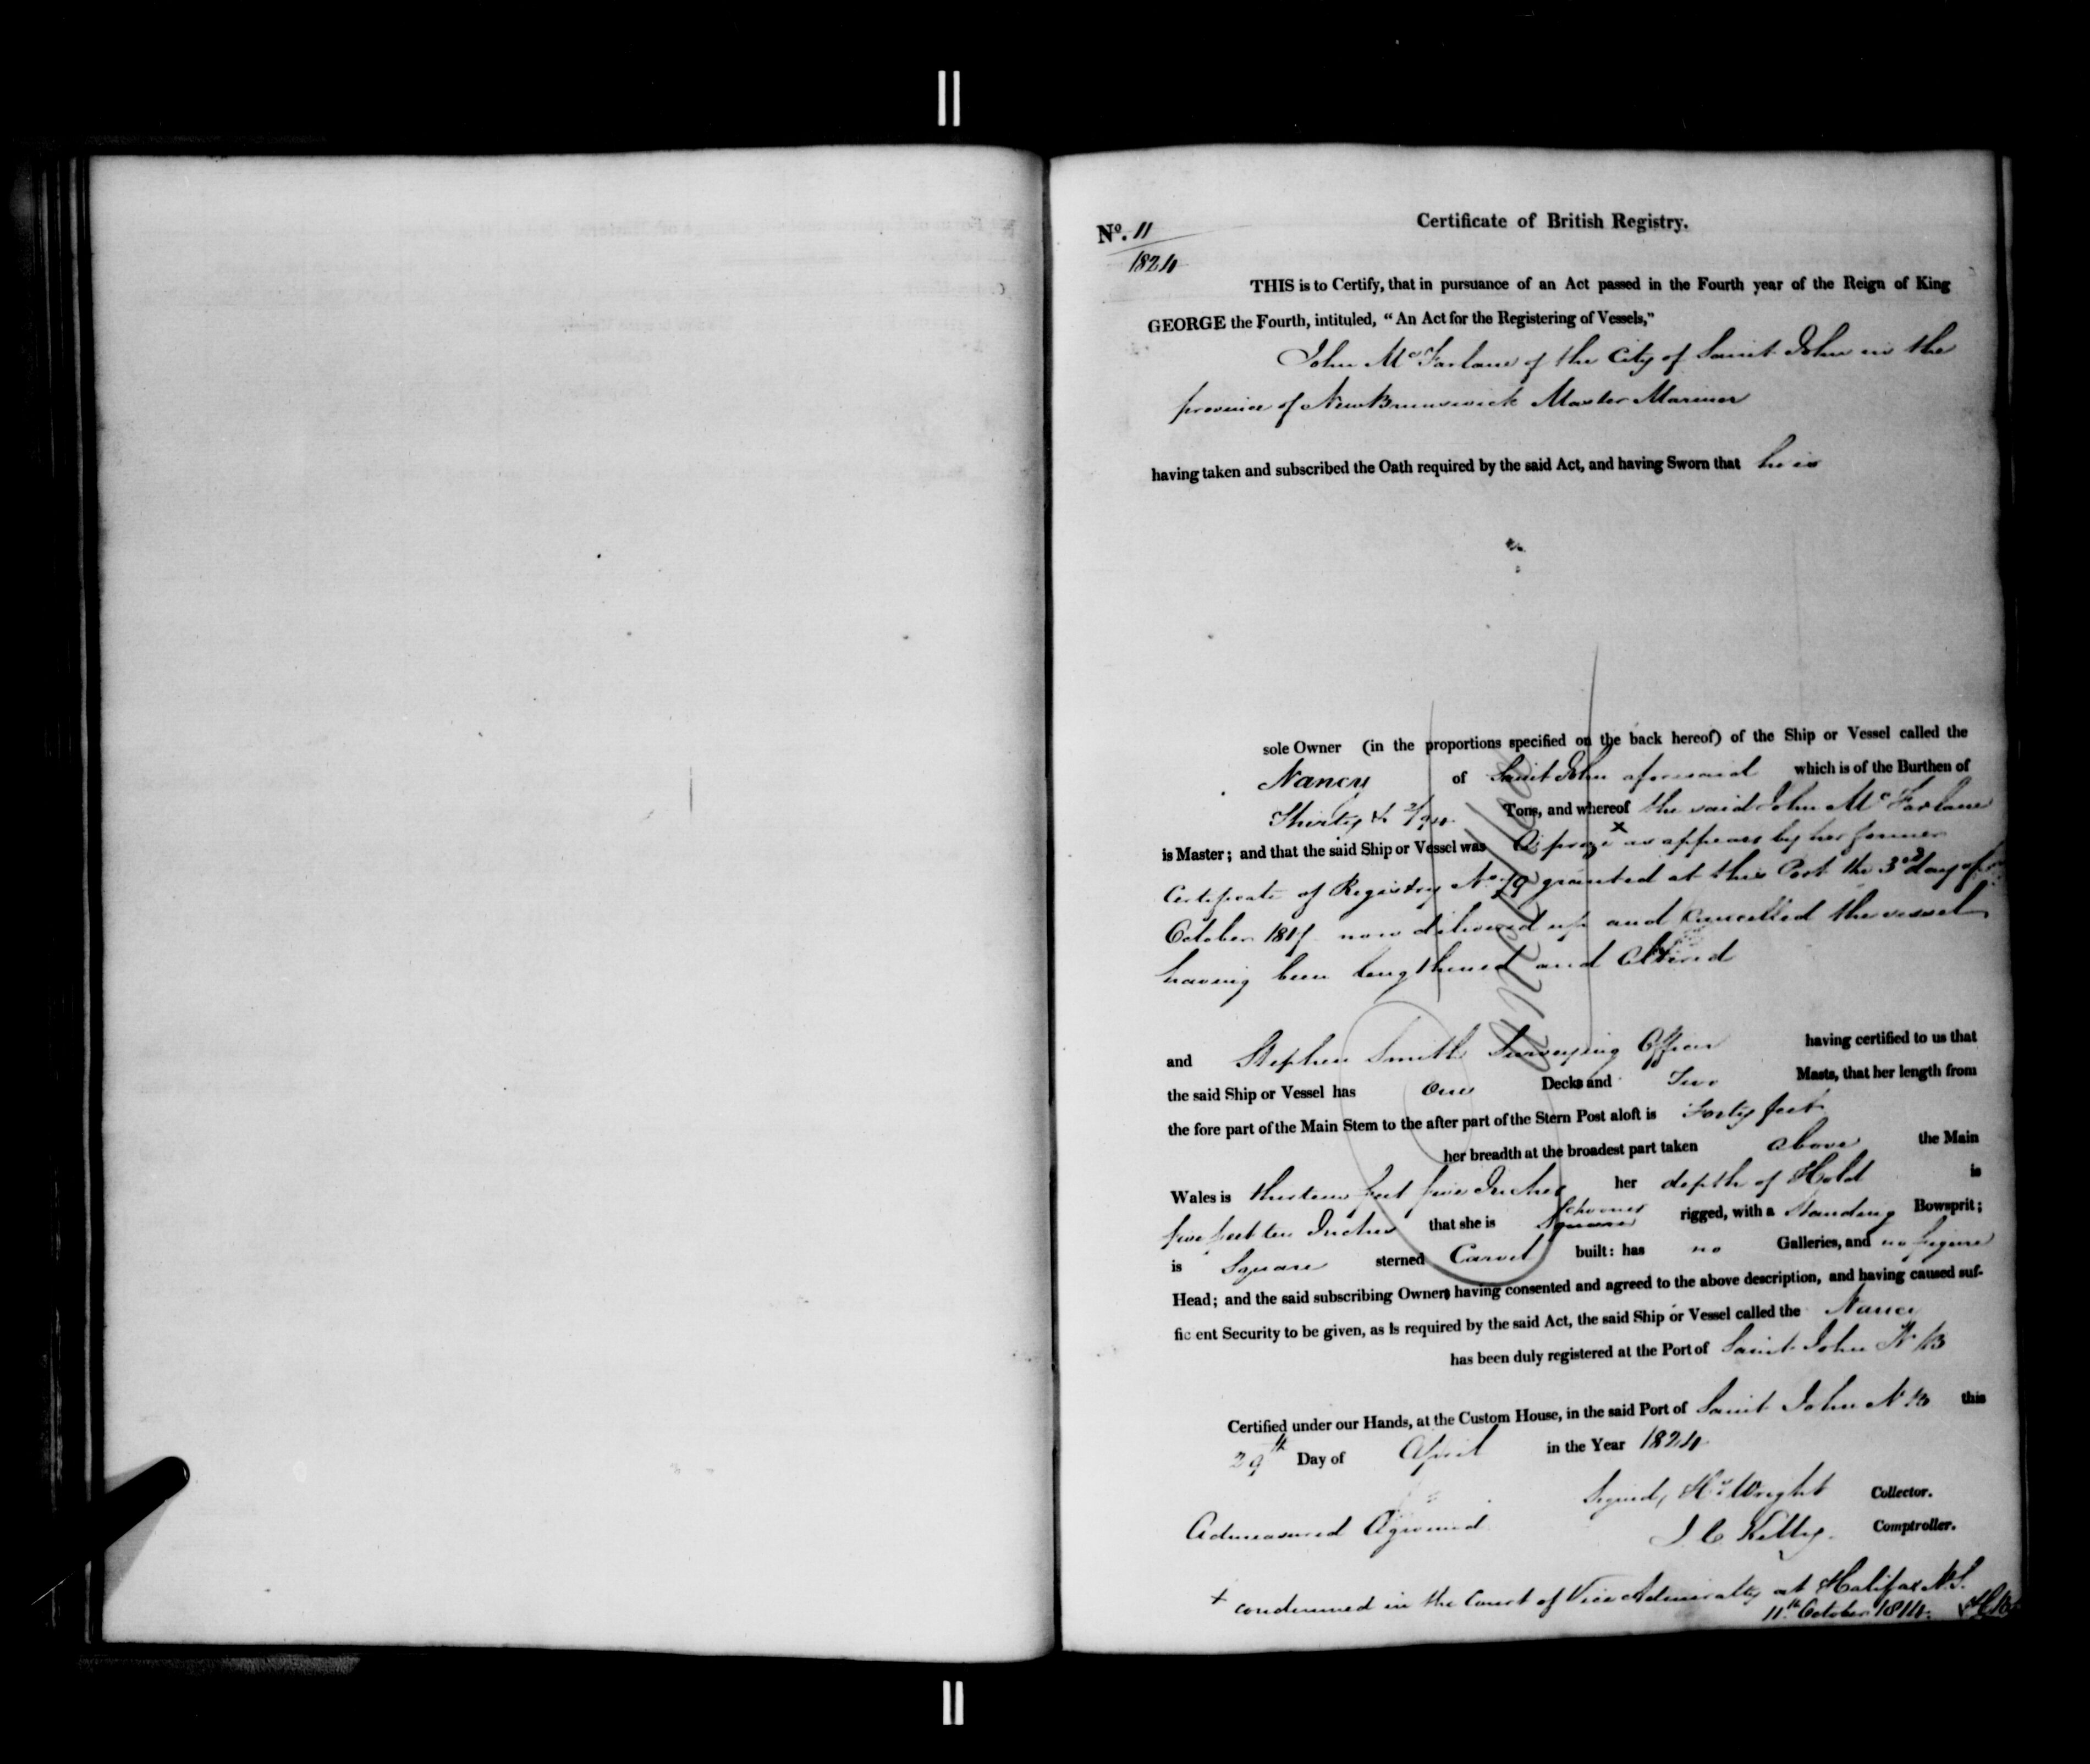 Certificate of British Registry.
No. 11
1824
THIS is to Certify, that in pursuance of an Act passed in the Fourth year of the Reign of King
GEORGE the Fourth, intituled, "An Act for the Registering of Vessels,"
John McFarlane of the City of Saint John in the
province of New Brunswick Master Mariner
having taken and subscribed the Oath required by the said Act, and having Sworn that he is
sole Owner (in the proportions specified on the back hereof) of the Ship or Vessel called the
Nancy of Saint John aforesaid which is of the Burthen of
Thirty & 2/94 Tons, and whereof the said John McFarlane
is Master; and that the said Ship or Vessel was A prize x as appears by her former
Certificate of Registry No. 19 granted at this Port the 3rd day of
October now delivered up and Cancelled the vessel
having been lengthened and Altered
Cancelled
and Stephen Smith Surveying Officer having certified to us that
the said Ship or Vessel has One Decks and Two Masts, that her length from
the fore part of the Main Stem to the after part of the Stern Post aloft is Forty feet
her breadth at the broadest part taken above the Main
Wales is thirteen feet five Inches her depth of Hold is
five feet ten Inches that she is Square Schooner rigged, with a Standing Bowsprit;
is Square sterned Carvel built: has no Galleries, and no figure
Head; and the said subscribing Owners having consented and agreed to the above description, and having caused suf-
fic ent Security to be given, as is required by the said Act, the said Ship or Vessel called the Nancy
has been duly registered at the Port of Saint John N B
Certified under our Hands, at the Custom House, in the said Port of Saint John N B this
29th Day of April in the Year 1824
Signed, Hy Wright Collector.
Admeasured Aground J C Kelly. Comptroller.
+ condemned in the Court of Vice Admiralty at Halifax N.S.
11th October 1814.